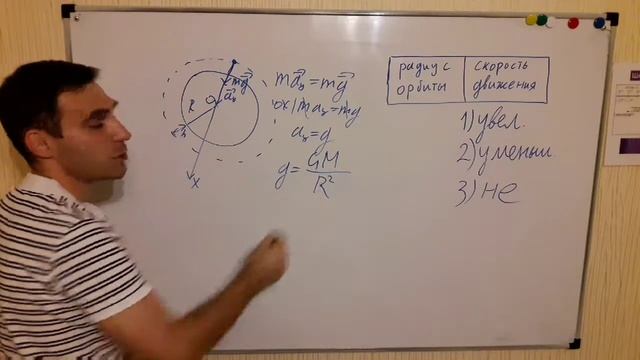 mg⃗
a⃗
R
x
ma⃗ₙ = mg⃗
ox | maₙ = mg
aₙ = g
g = GM / R²
радиус с орбиты
скорость движения
1) увел.
2) уменьш.
3) не